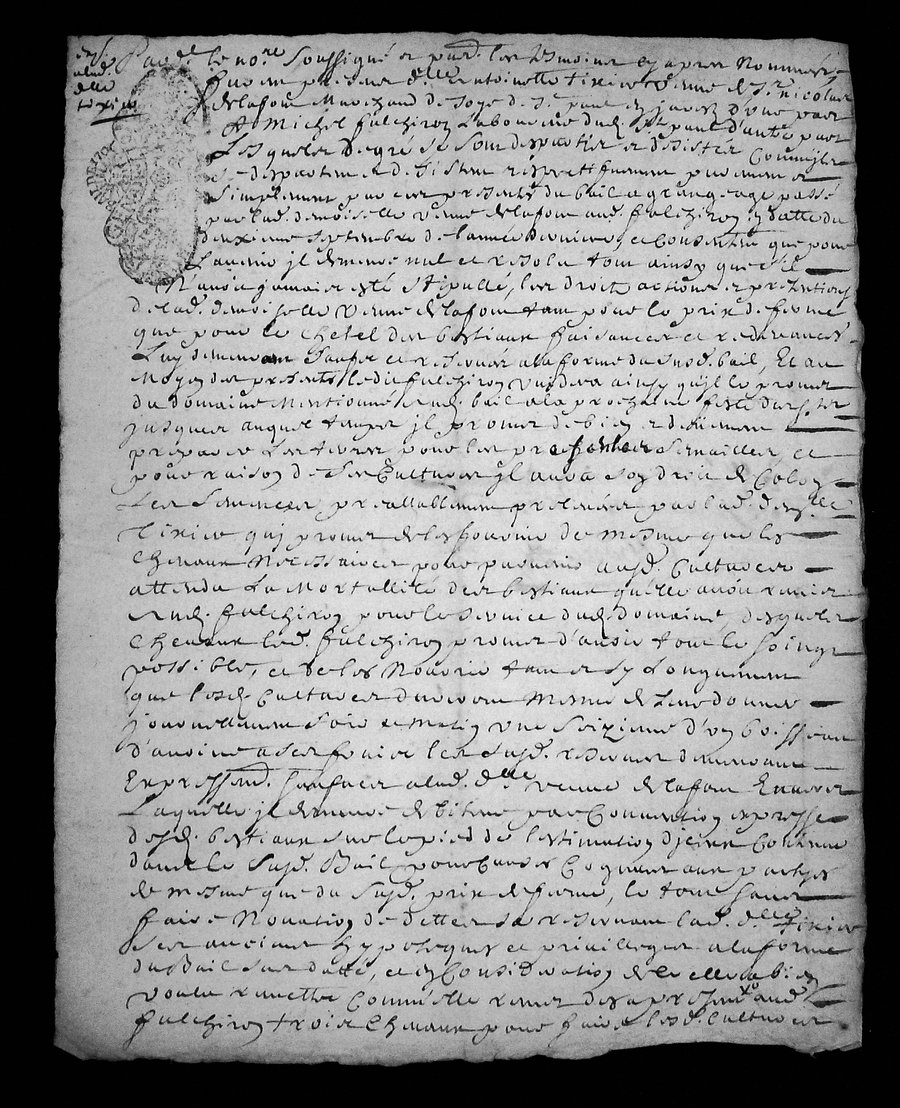 Pard. le no.re Soussigné et pard. les tesmoins cy apres Nommés
fut en personne d.elle antoinette tixier veuve de S.r nicolas
delafont Marchand de Soye de S.t paul en jarez d'une part
Et Michel fulchiron Laboureur dud. S.t paul d'autre part
Lesquels de gré se sont despartis et desistés Comme ils
se despartent et desistent respectivement purement et
Simplement par ces presentes du bail a grangeage passé
par lad. demoiselle veuve delafont aud. fulchiron en datte du
deuxieme septembre de l'année derniere, et Consentent que pour
L'avenir il demeure nul et resolu tout ainsy que s'il
N'avoit jamais esté stipullé, les droits actions et pretentions
de lad. demoiselle veuve delafont tant pour le prix de ferme
que pour le chetel des bestiaux faisances et redevances
Luy demeurant Saufs et reservés a la forme du susd. bail, Et au
Moyen des presentes ledit fulchiron vuidera ainsy qu'il le promet
du domaine Mentionné aud. bail a la prochaine feste
jusques auquel temps il promet de bien et deuement
preparer Les terres pour les
pour raison de ses Cultures il aura son droit de Colon
Les Semences preallablement prelevées par lad. dem.elle
tixier qui promet de les fournir de mesme que les
chevaux Necessaires pour parvenir ausd. Cultures
attendu La Mortallité des bestiaux qu'elle avoit remis
aud. fulchiron pour le service dud. domaine, desquels
Chevaux led. fulchiron promet d'avoir tout le soing
possible, et de les Nourrir tant et sy Longuement
que lesd. Cultures dureront Mesme de Leur donner
journellement soir et matin une seizieme d'un boisseau
d'avoine a ses frais les susd. reserves demeurant
Expressem.t saufves a lad. d.elle veuve delafont Envers
Laquelle il demeure debiteur par Convention expresse
desd. bestiaux sur le pied de l'estimation d'iceux Contenue
dans le susd. Bail pour causes Cogneues aux parties
de mesme que du susd. prix de ferme, le tout sans
faire Novation de dettes se reservant lad. d.elle tixier
ses anciens hypoteques et privileges a la forme
du Bail sus datté, et en Consideration de ce elle a bien
voulu remettre Comme elle remet des a present aud.
fulchiron trois Chevaux pour faire lesd. Cultures